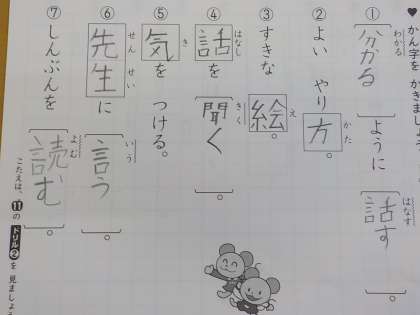 ♥ かん字を かきましょう。
① 分かる ように 話す。
わかる はなす
② よい やり方。
かた
③ すきな 絵。
え
④ 話を 聞く。
はなし きく
⑤ 気を つける。
き
⑥ 先生に 言う。
せんせい いう
⑦ しんぶんを 読む。
よむ
こたえは、11の ドリル②を 見ましょ